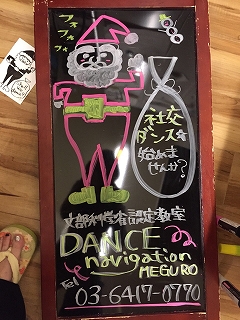 フォフォフォ
社交
ダンス
始めま
せんか?
文部科学省認定教室
DANCE
navigation
MEGURO
Tel
03-6417-0770